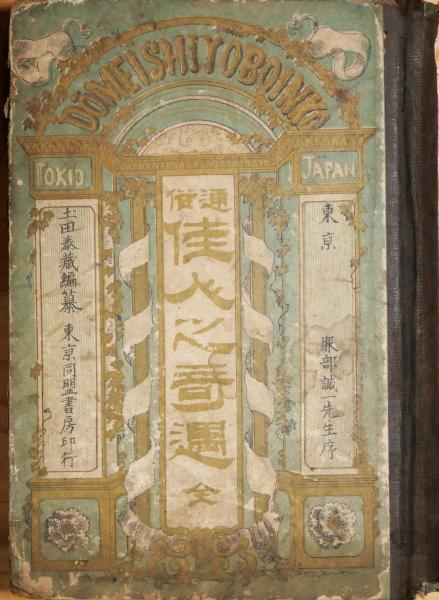 DŌMEISHIYOBOINKO
TOKIO
JAPAN
東京 服部誠一先生序
通俗
佳人之奇遇 全
土田泰蔵編纂 東京同盟書房印行